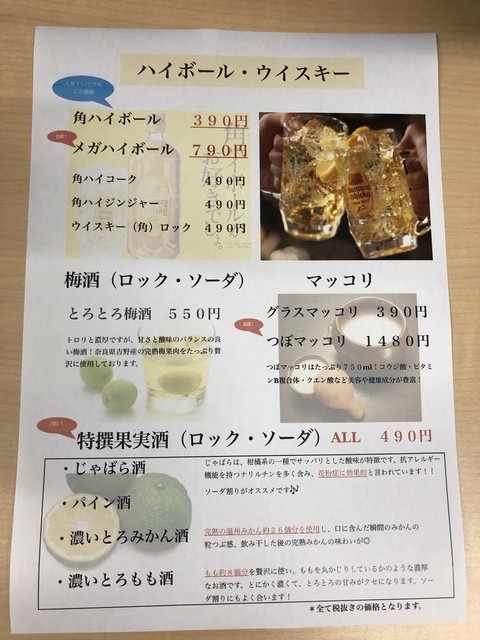 ハイボール・ウイスキー
人気！いつでも
この価格
角ハイボール　390円
メガハイボール　790円
角ハイコーク　490円
角ハイジンジャー　490円
ウイスキー（角）ロック　490円
梅酒（ロック・ソーダ）
とろとろ梅酒　550円
トロリと濃厚ですが、甘さと酸味のバランスの良
い梅酒！奈良県吉野産の完熟梅果肉をたっぷり贅
沢に使用しております。
マッコリ
グラスマッコリ　390円
つぼマッコリ　1480円
つぼマッコリはたっぷり750ml！コウジ酸・ビタミ
ンB複合体・クエン酸など美容や健康成分が豊富！
特撰果実酒（ロック・ソーダ）ALL　490円
・じゃばら酒
じゃばらは、柑橘系の一種でサッパリとした酸味が特徴です。抗アレルギー
機能を持つナリルチンを多く含み、花粉症に効果的と言われています！！
ソーダ割りがオススメです♪
・パイン酒
・濃いとろみかん酒
完熟の温州みかん約26個分を使用し、口に含んだ瞬間のみかんの
粒つぶ感、飲み干した後の完熟みかんの味わいが◎
・濃いとろもも酒
もも約8個分を贅沢に使い、ももを丸かじりしているかのような濃厚
なお酒です。とにかく濃くて、とろとろの甘みがクセになります。ソー
ダ割りにもよく合います！
＊全て税抜きの価格となります。